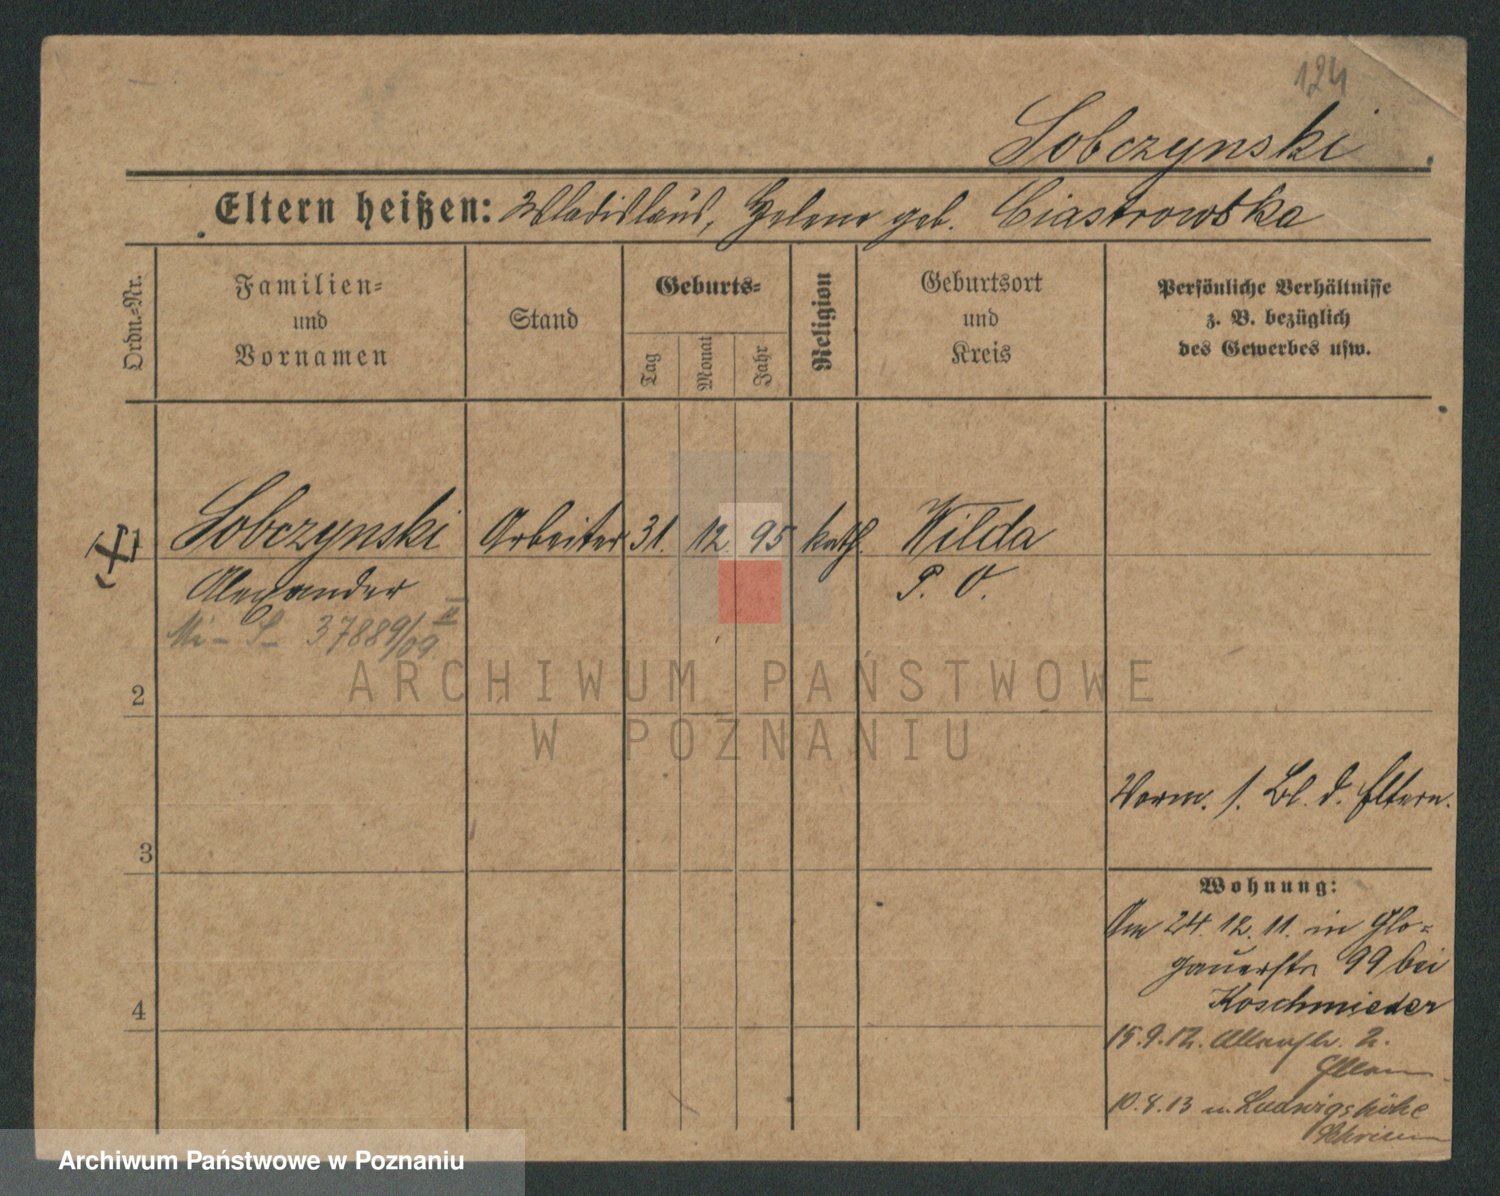 124
Sobczynski
Eltern heißen: Wladislaus, Helene geb. Ciastrowska
Ordn.-Nr.
Familien-
und
Vornamen
Stand
Geburts-
Tag
Monat
Jahr
Religion
Geburtsort
und
Kreis
Persönliche Verhältnisse
z. B. bezüglich
des Gewerbes usw.
1 Sobczynski Arbeiter 31. 12. 95 kath. Wilda
Alexander P. O.
37889/09
ARCHIWUM PAŃSTWOWE
W POZNANIU
2
Verm. s. Bl. d. Eltern.
3
Wohnung:
Am 24. 12. 11. in Glo-
gauerstr 99 bei
Koschmieder
4
15.9.12. 2.
Eltern
10.8.13 n. Ludwigshöhe
Archiwum Państwowe w Poznaniu